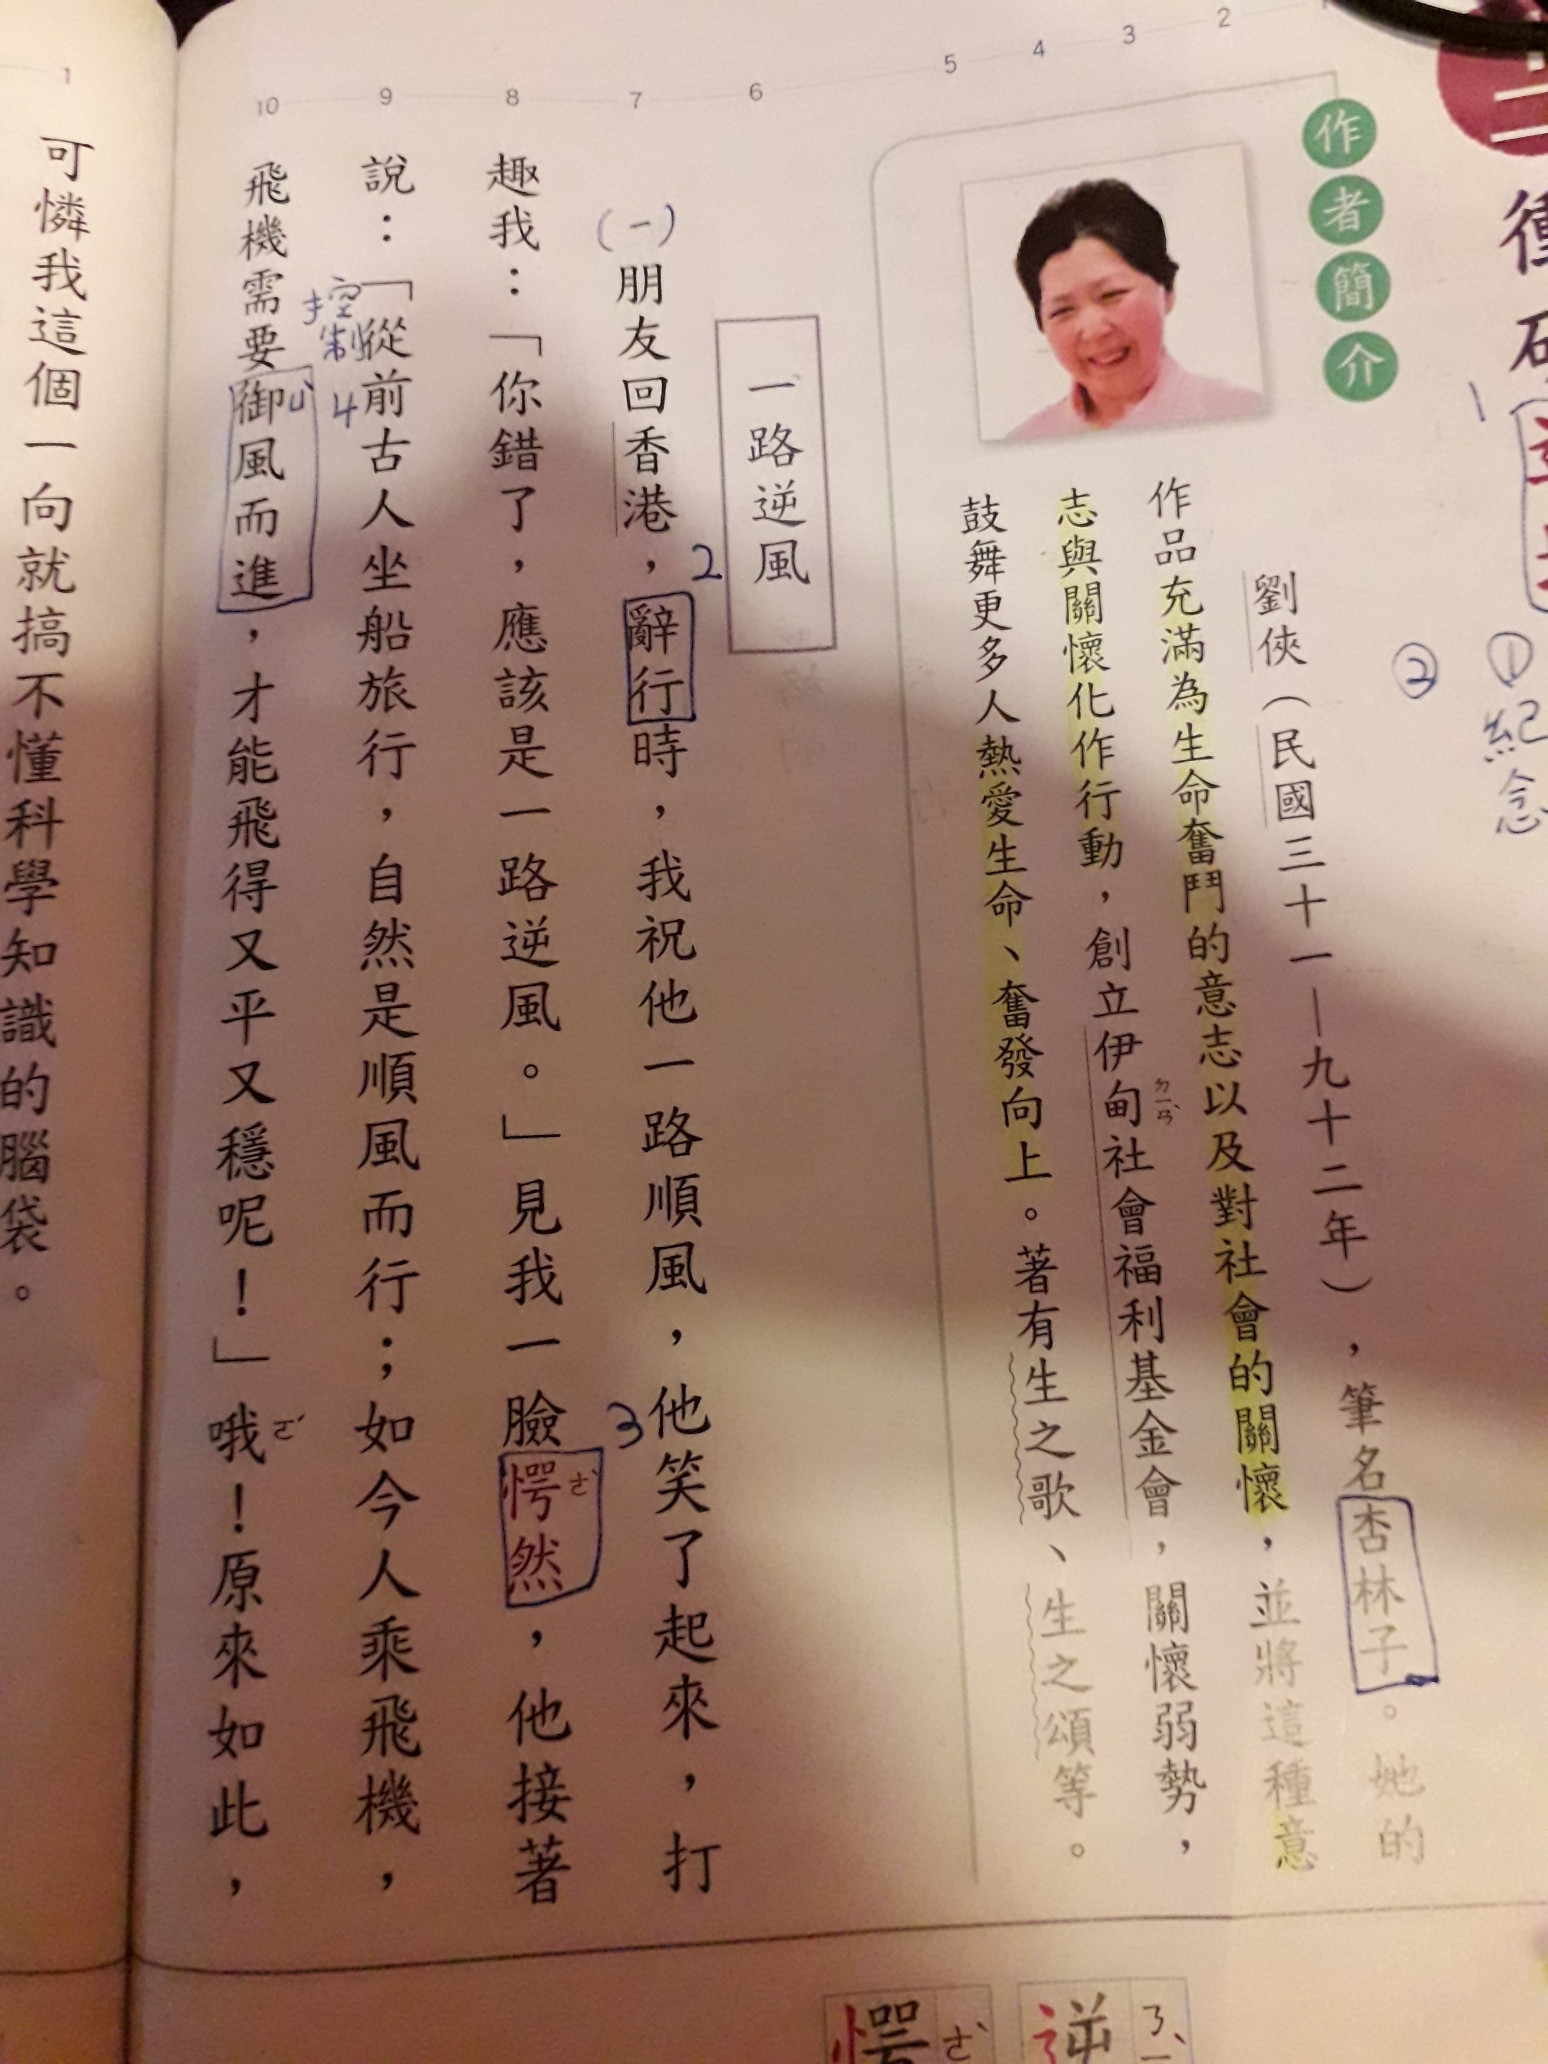 作者簡介
劉俠（民國三十一—九十二年），筆名杏林子。她的
作品充滿為生命奮鬥的意志以及對社會的關懷，並將這種意
志與關懷化作行動，創立伊甸社會福利基金會，關懷弱勢，
ㄉㄧㄢˋ
鼓舞更多人熱愛生命、奮發向上。著有生之歌、生之頌等。
①紀念
②
1
2
3
4
5
6
7
8
9
10
一路逆風
(一)朋友回香港，辭行時，我祝他一路順風，他笑了起來，打
2
趣我：「你錯了，應該是一路逆風。」見我一臉愕然，他接著
3
ㄜˋ
說：「從前古人坐船旅行，自然是順風而行；如今人乘飛機，
控制
4
飛機需要御風而進，才能飛得又平又穩呢！」哦！原來如此，
ㄩˋ
ㄛˊ
1
可憐我這個一向就搞不懂科學知識的腦袋。
逆
愕
ㄜˋ